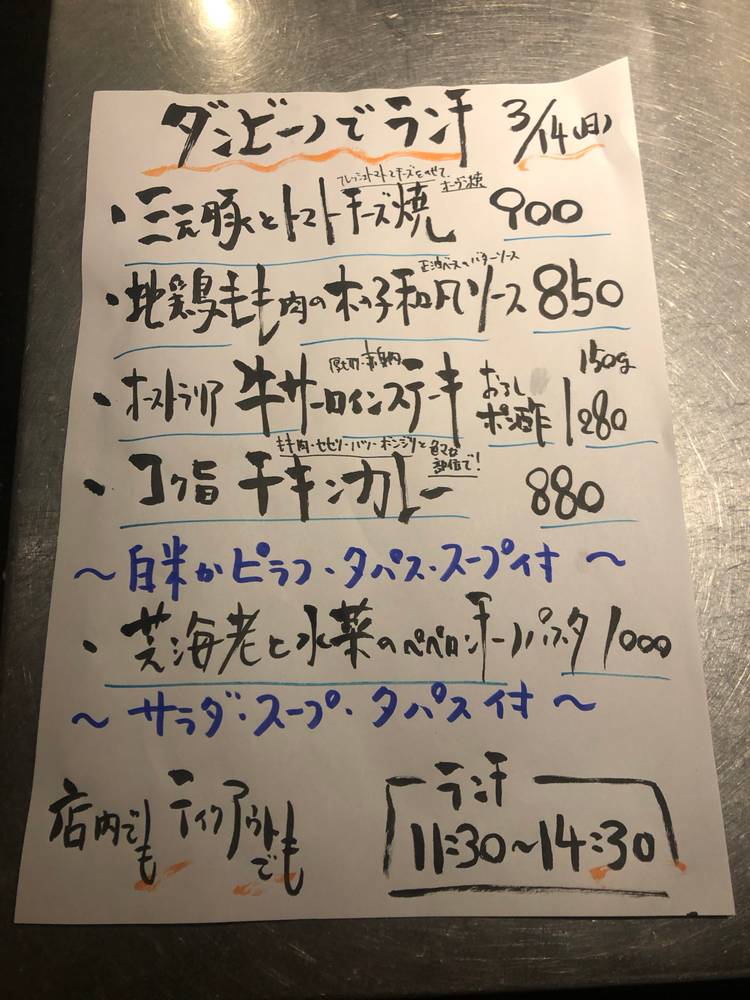 ダンビーノでランチ 3/14(日)
フレッシュトマトとチーズをのせて、オーブン焼
・三元豚とトマトチーズ焼 900
ベースのバターソース
・地鶏もも肉のきのこ和風ソース 850
厚切り・赤身肉 150g
・オーストラリア 牛サーロインステーキ おろしポン酢 1280
もも肉・セセリ・ハツ・ボンジリと色々な部位で!
・コク旨 チキンカレー 880
～白米かピラフ・タパス・スープ付～
・芝海老と水菜のペペロンチーノパスタ 1000
～サラダ・スープ・タパス付～
店内でも テイクアウトでも
ランチ
11:30～14:30